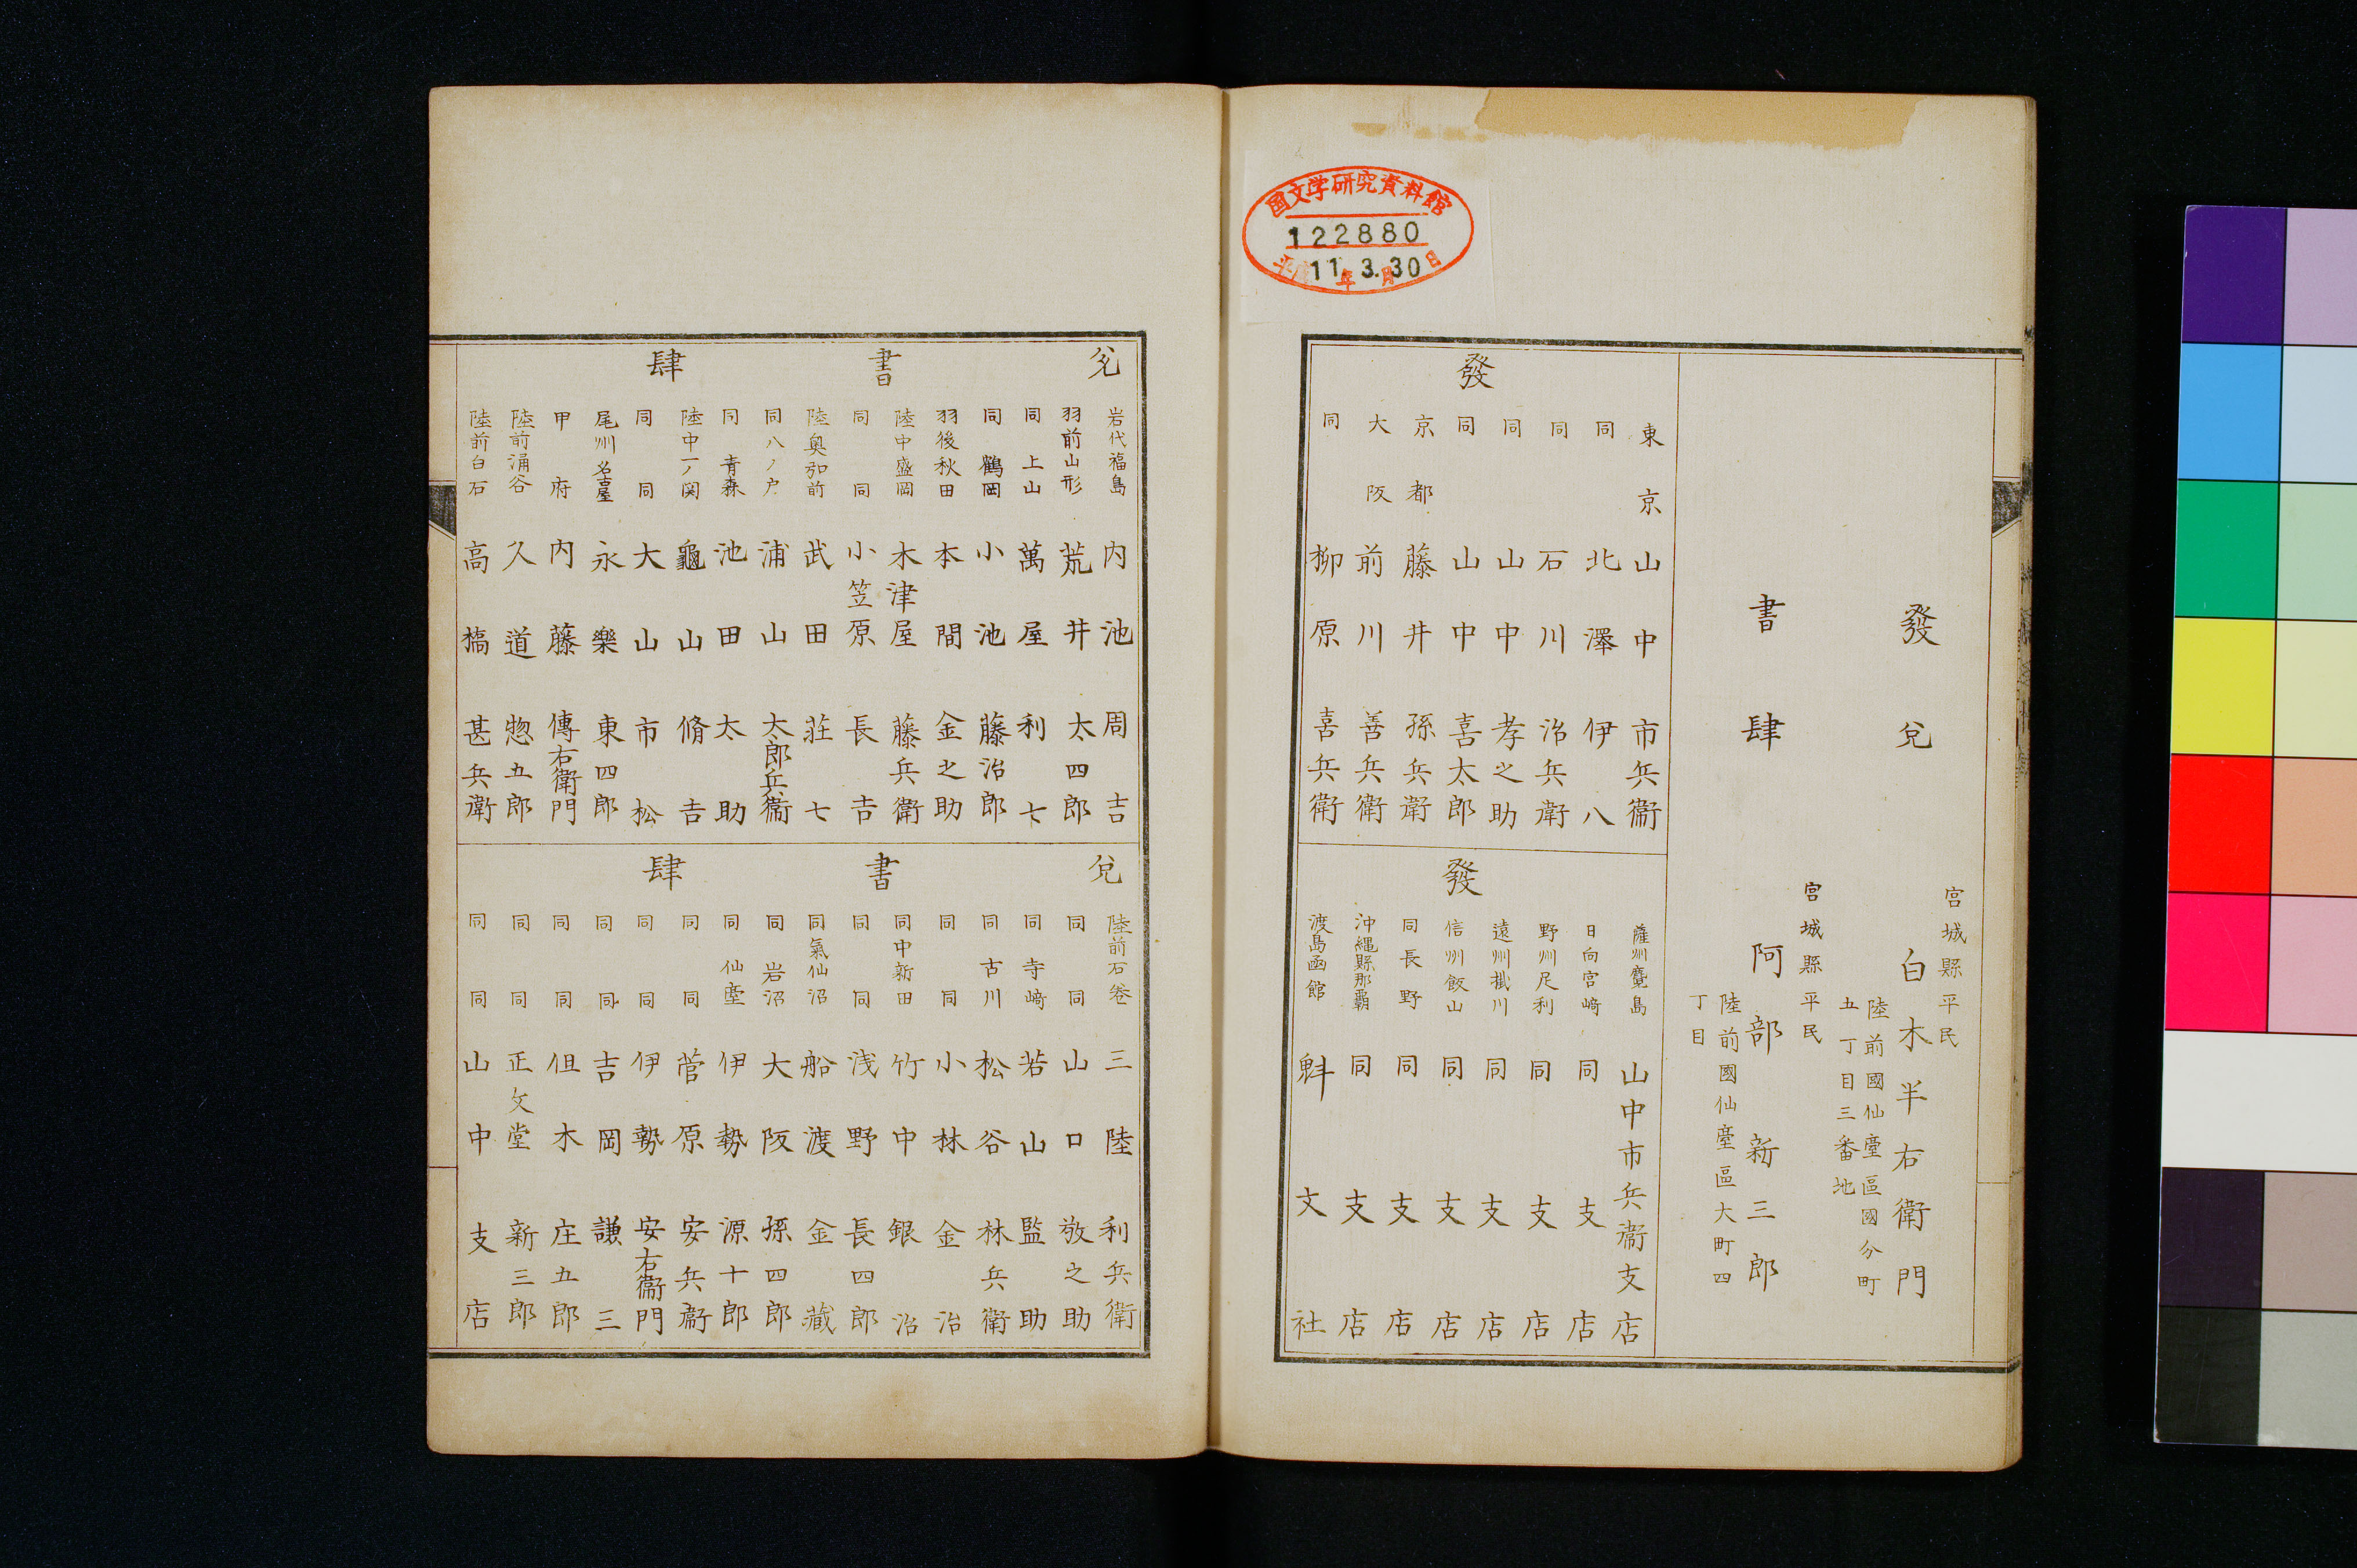 国文学研究資料館
122880
平成11年3月30日
發兌
書肆
宮城縣平民
白木半右衛門
陸前國仙臺區國分町
五丁目三番地
宮城縣平民
阿部新三郎
陸前國仙臺區大町四
丁目
發
東京 山中市兵衞
同 北澤伊八
同 石川治兵衛
同 山中孝之助
同 山中喜太郎
京都 藤井孫兵衛
大阪 前川善兵衛
同 柳原喜兵衛
發
薩州麑島 山中市兵衞支店
日向宮﨑 同支店
野州足利 同支店
遠州掛川 同支店
信州飯山 同支店
同長野 同支店
沖縄縣那覇 同支店
渡島函館 魁文社
兌
書
肆
岩代福島 内池周吉
羽前山形 荒井太四郎
同上山 萬屋利七
同鶴岡 小池藤治郎
羽後秋田 本間金之助
陸中盛岡 木津屋藤兵衛
同同 小笠原長吉
陸奥弘前 武田荘七
同八ノ戸 浦山太郎兵衞
同青森 池田太助
陸中一ノ関 龜山脩吉
同同 大山市松
尾州名古屋 永樂東四郎
甲府 内藤傳右衛門
陸前涌谷 久道惣五郎
陸前白石 高橋甚兵衛
兌
書
肆
陸前石巻 三陸利兵衛
同同 山口敬之助
同寺﨑 若山監助
同古川 松谷林兵衛
同同 小林金治
同中新田 竹中銀治
同同 浅野長四郎
同氣仙沼 船渡金藏
同岩沼 大阪孫四郎
同仙臺 伊勢源十郎
同同 菅原安兵衞
同同 伊勢安右衞門
同同 吉岡謙三
同同 但木庄五郎
同同 正文堂新三郎
同同 山中支店